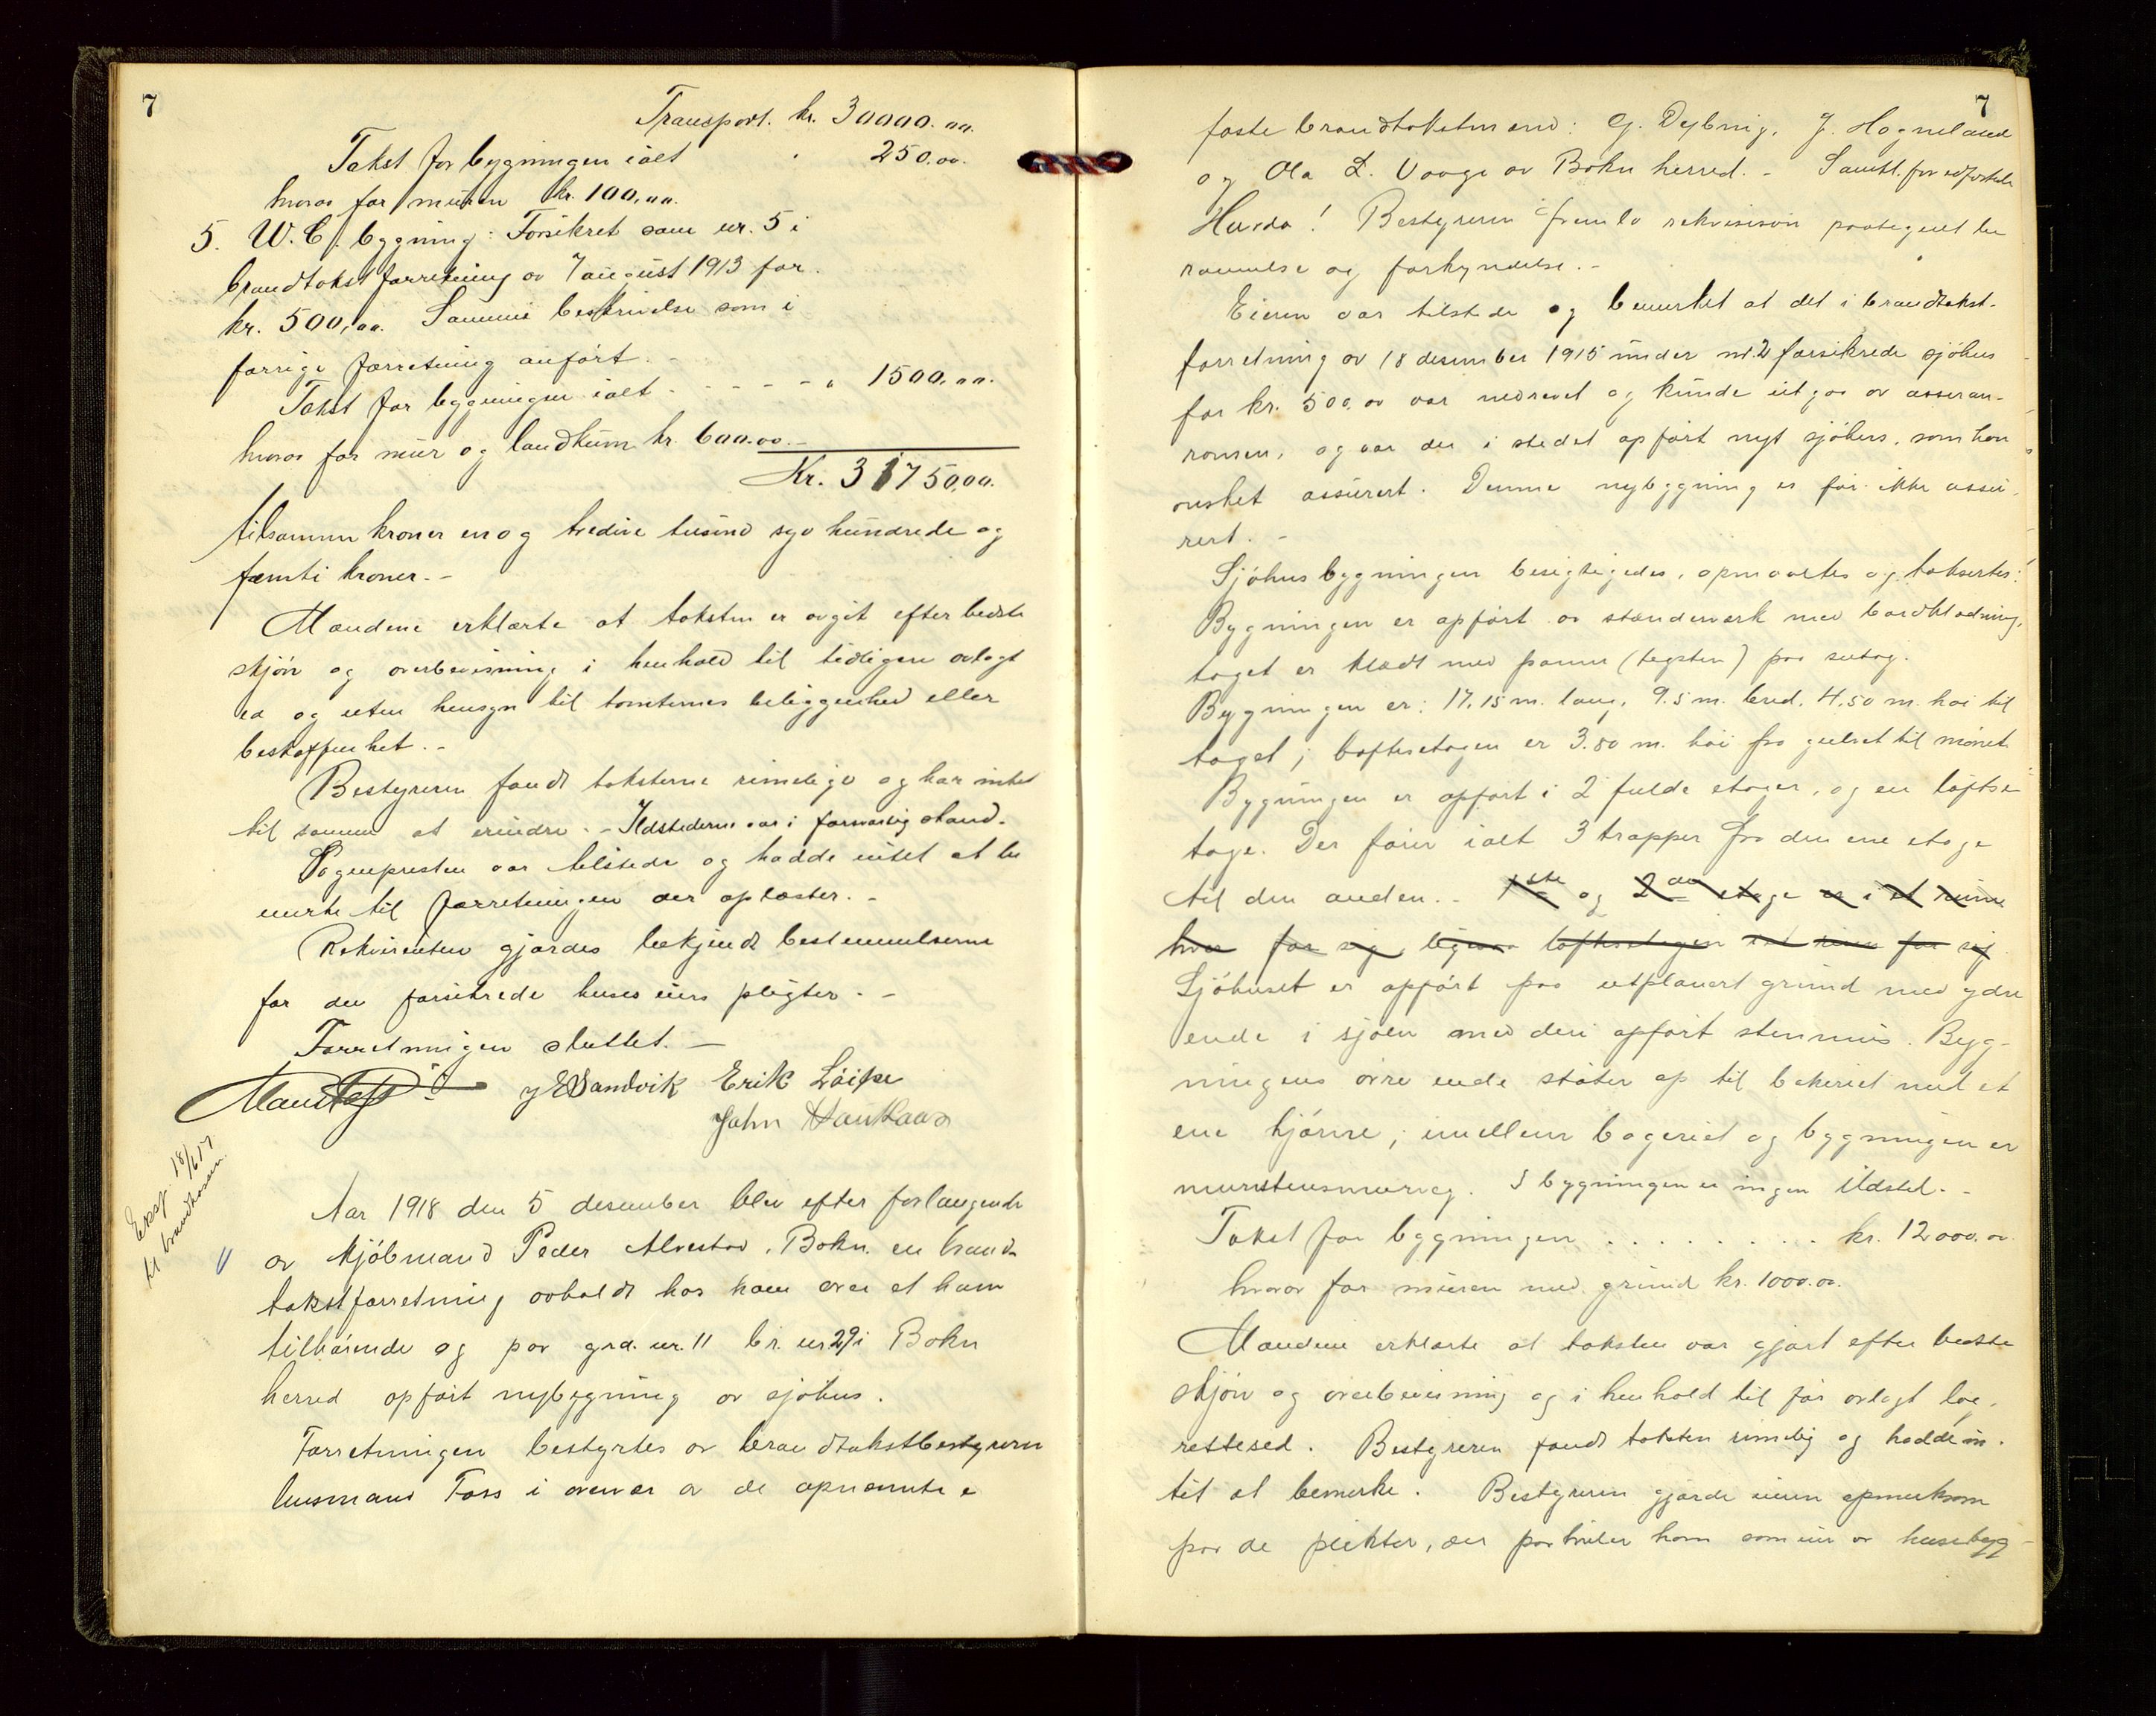 7
Transport. kr. 30000.00.
Takst for bygningen ialt " 250.00.
hvorav for muren kr. 100,00.
5. W.C. bygning: Forsikret som nr. 5 i
brandtakstforretning av 7 august 1913 for
kr. 500,00. Samme beskrivelse som i
forrige forretning anført. -
Takst for bygningen ialt - - - - - " 1500,00.
hvorav for mur og landkum kr. 600.00. -
Kr. 31750,00.
tilsammen kroner en og tredive tusind syv hundrede og
femti kroner. -
Mændene erklærte at taksten er avgit efter bedste
skjøn og overbevisning i henhold til tidligere avlagt
ed og uten hensyn til tomternes beliggenhed eller
beskaffenhet. -
Bestyreren fandt taksterne rimelige og har intet
til samme at erindre. - Ildstederne var i forsvarlig stand.
Sognepresten var tilstede og hadde intet at be
merke til forretningen der oplæstes. -
Rekvirenten gjordes bekjendt bestemmelserne
for de forsikrede huses eiers pligter. -
Forretningen sluttet. -
J E Sandvik Erik Løipe
John Haukaas
Eksp. 18/6 17
til brandkassen.
Aar 1918 den 5 desember blev efter forlangende
av kjøbmand Peder Alvestad, Bokn en brand-
takstforretning avholdt hos ham over et ham
tilhørende og paa grd. nr. 11 br. nr 29 i Bokn
herred opført nybygning av sjøhus.
Forretningen bestyrtes av brandtakstbestyreren
lensmand Foss i overvær av de opnævnte
7
faste brandtakstmænd: G. Dybing, J. Hognaland
og Ola L. Vaage av Bokn herred. -
Hørda! Bestyreren fremla rekvisision paategnet be
rammelse og forkyndelse. -
Eieren var tilstede og bemerket at det i brandtakst-
forretning av 18 desember 1915 under nr. 2 forsikrede sjøhus
for kr. 500.00 var nedrevet og kunde utgaa av assuran-
ronsen, og var der i stedet opført nyt sjøhus, som han
ønsket assurert. Denne nybygning er før ikke assu-
rert. -
Sjøhusbygningen besigtigedes, opmaaltes og takseres:
Bygningen er opført av stænderverk med bordklædning,
taget er klædt med panner (tegsten) paa sutag.
Bygningen er: 17,15 m. lang, 9.5 m. bred, 4,50 m. høi til
taget; loftsetagen er 3.80 m. høi fra gulvet til mønet.
Bygningen er opført i 2 fulde etager, og en loftse-
tage. Der fører ialt 3 trapper fra den ene etage
til den anden. - 1ste og 2den etage er i et rum
hver for sig ligesaa loftsetagen et rum for sig.
Sjøhuset er opført paa utplanert grund med ydre
ende i sjøen med deri opført stenmur. Byg-
ningens øvre ende støter op til bakeriet med et
ene hjørne; mellem bageriet og bygningen er
murstensmurvæg. I bygningen er ingen ildsted. -
Takst for bygningen . . . . . . . . . kr. 12000.00
hvorav for muren med grund kr. 1000.00.
Mændene erklærte at taksten var gjort efter bedste
skjøn og overbevisning og i henhold til før avlagt lag-
rettesed. Bestyreren fandt taksten rimelig og hadde in-
tet at bemerke. Bestyreren gjorde eieren opmerksom
paa de plikter, der paahviler ham som eier av husebyg-